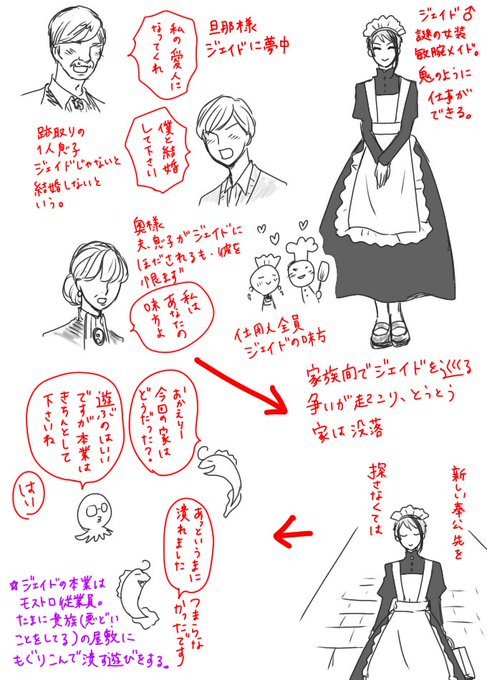 ジェイド♂
謎の女装
敏腕メイド。
鬼のように
仕事が
できる。
旦那様
ジェイドに夢中
私の愛人に
なってくれ
跡取りの
1人息子
ジェイドじゃないと
結婚しないと
いう。
僕と結婚
して下さい
奥様
夫、息子がジェイドに
ほだされるも・彼を
恨まず
私は
あなたの
味方よ
仕用人全員
ジェイドの味方
家族間でジェイドをめぐる
争いが起こり、とうとう
家は没落
新しい奉公先を
探さなくては
おかえりー
今回の家は
どうだった?
遊ぶのはいい
ですが本業は
きちんとして
下さいね
はい
あっというまに
潰れました
つまらな
かったです
☆ジェイドの本業は
モストロ従業員。
たまに貴族(悪どい
ことをしてる)の屋敷に
もぐりこんで潰す遊びをする。